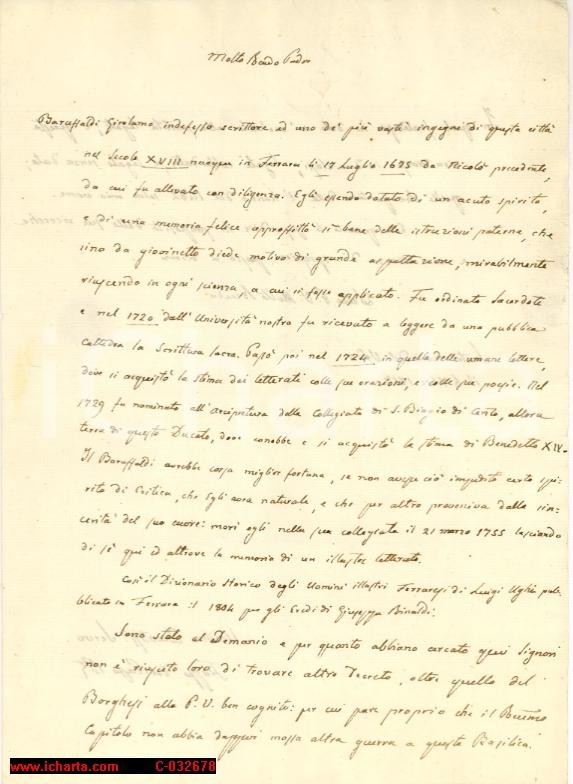 Molto Rendo Padre
Baruffaldi Girolamo indefesso scrittore ed uno de' più vasti ingegni di questa città
nel Secolo XVIII nacque in Ferrara li 17 Luglio 1675 da Nicolò precedente,
da cui fu allevato con diligenza. Egli essendo dotato di un acuto spirito,
e di una memoria felice approfittò sì bene delle istruzioni paterne, che
sino da giovinetto diede motivo di grande aspettazione, mirabilmente
riuscendo in ogni scienza a cui si fosse applicato. Fu ordinato Sacerdote
e nel 1720 dall' Università nostra fu ricevuto a leggere da una pubblica
Cattedra la Scrittura Sacra. Passò poi nel 1724 in quella delle umane lettere,
dove si acquistò la stima dei letterati colle sue orazioni, e colle sue poesie. Nel
1729 fu nominato all' arcipretura della Collegiata di S. Biagio di Cento, allora
terra di questo Ducato, dove conobbe e si acquistò la stima di Benedetto XIV.
Il Baruffaldi avrebbe corsa miglior fortuna, se non avesse ciò impedito certo spi-
rito di Critica, che Egli avea naturale, e che per altro proveniva dalla sin-
cerità del suo cuore: morì egli nella sua collegiata il 21 marzo 1755 lasciando
di sè qui ed altrove la memoria di un illustre letterato.
Così il Dizionario Storico degli Uomini illustri Ferraresi di Luigi Ughi pub-
blicato in Ferrara il 1804 per gli Eredi di Giuseppe Rinaldi:
Sono stato al Demanio e per quanto abbiano cercato quei Signori
non è riuscito loro di trovare altro Decreto, oltre quello del
Borghesi alla P. V. ben cognito: per cui pare proprio che il Rmo
Capitolo non abbia davvero mossa altra guerra a questa Basilica.
www.icharta.com C-032678